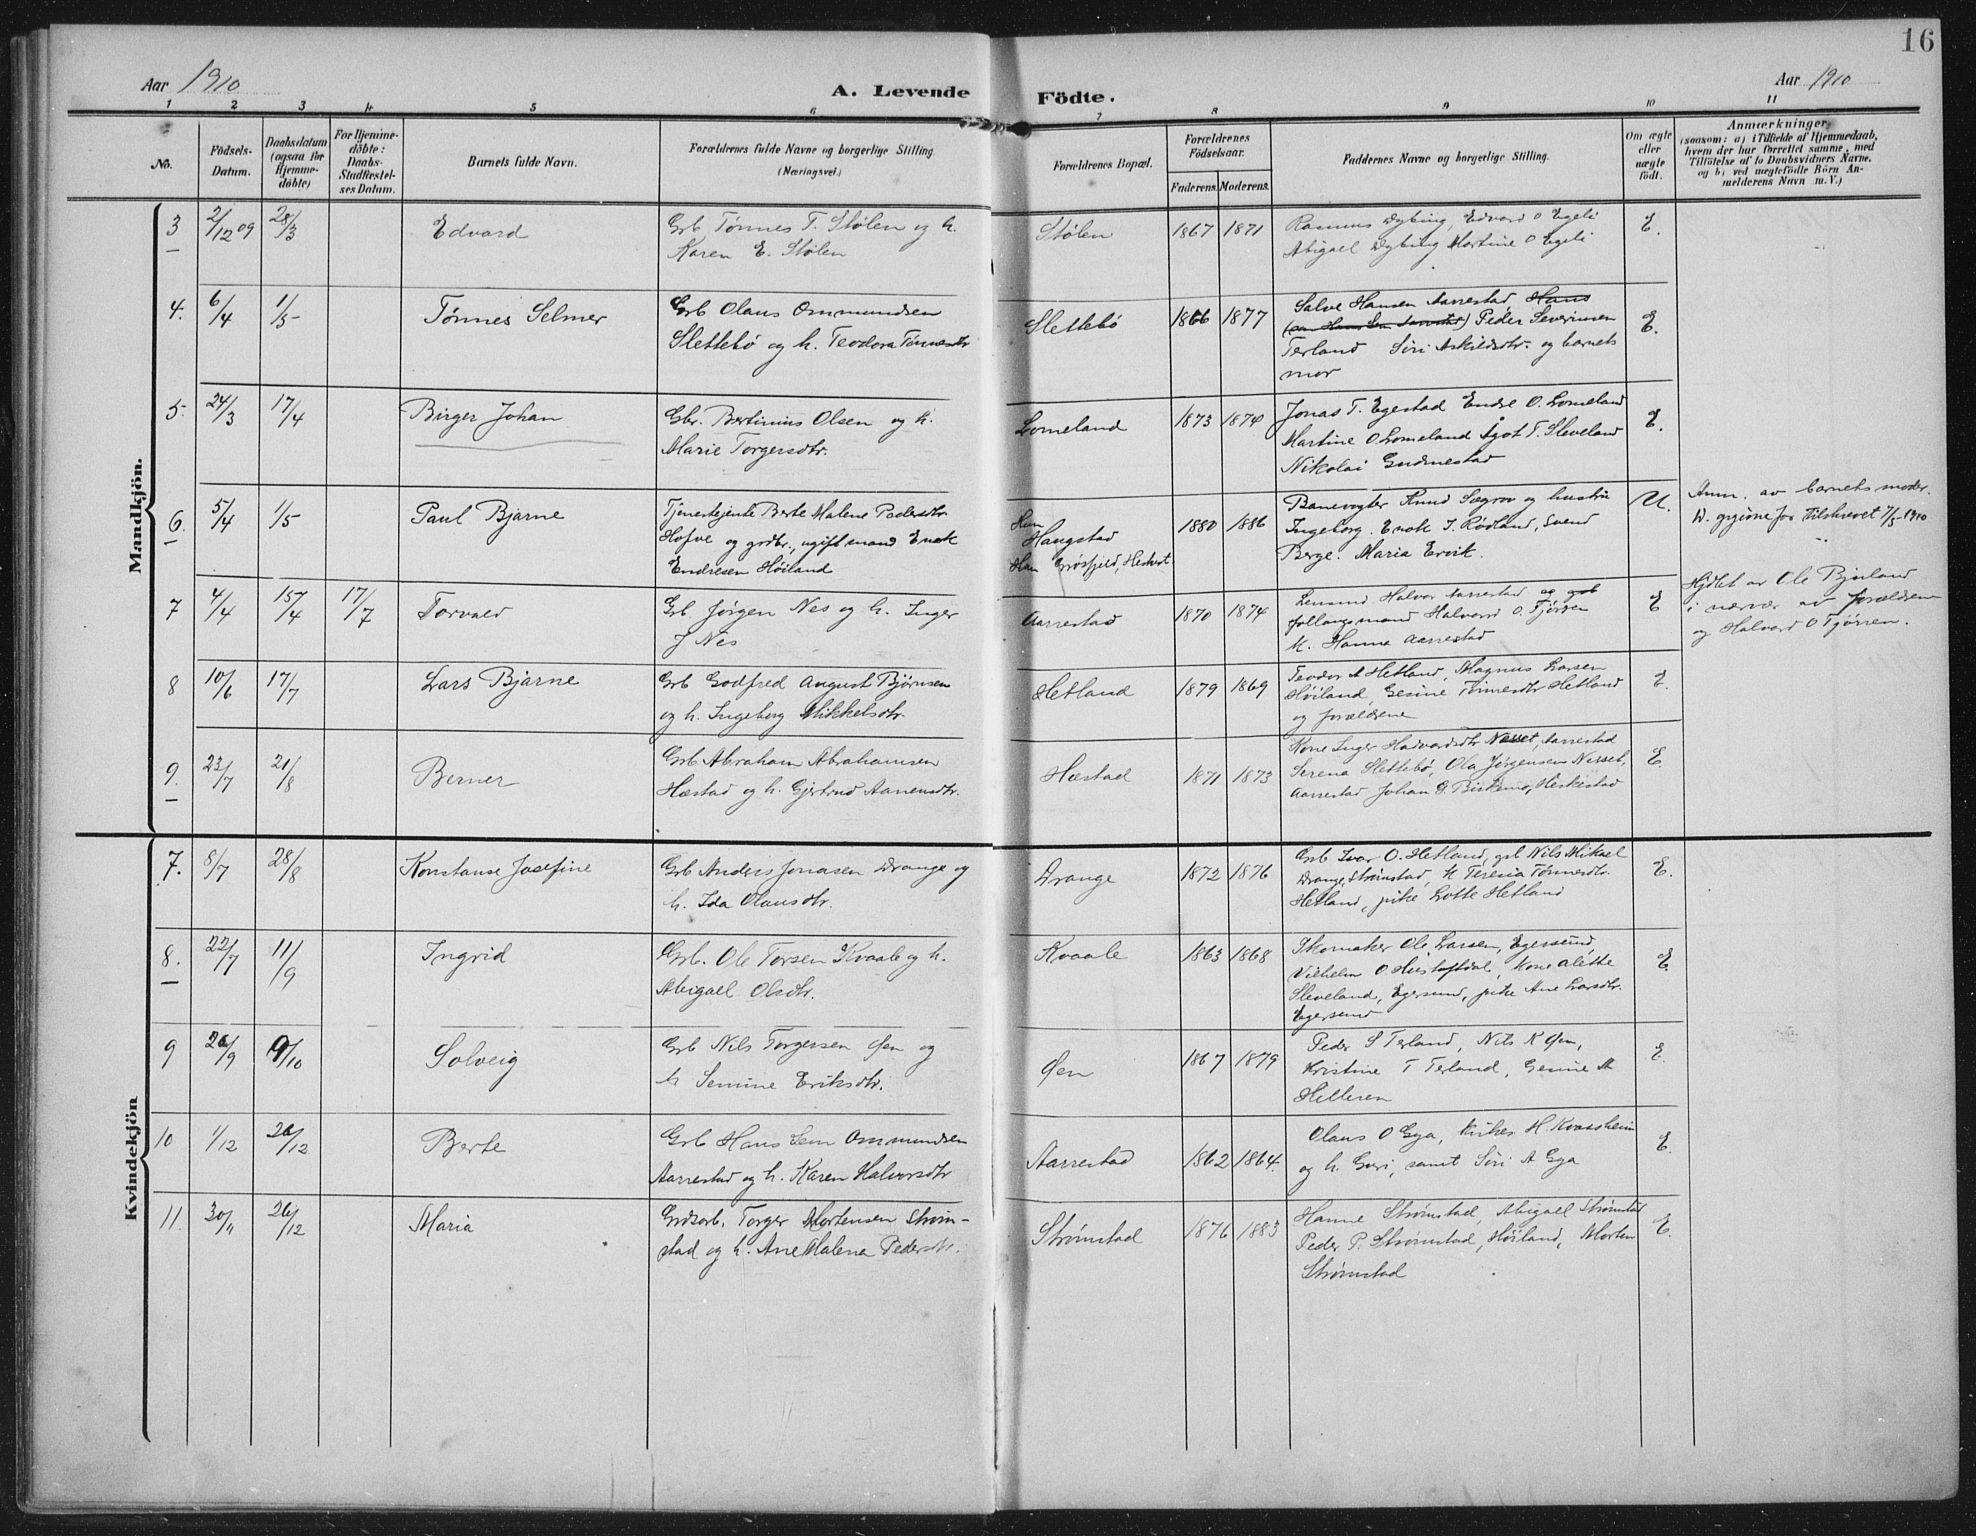 16
Aar 1910
A. Levende Födte.
Aar 1910
1 2 3 4 5 6 7 8 9 10 11
No.
Födsels-
Datum.
Daabsdatum
(ogsaa for
Hjemme-
döbte)
For Hjemme-
döbte:
Daabs-
Stadfestel-
ses Datum.
Barnets fulde Navn.
Forældrenes fulde Navne og borgerlige Stilling.
(Næringsvei.)
Forældrenes Bopæl.
Forældrenes
Födselsaar.
Faderens. Moderens.
Faddernes Navne og borgerlige Stilling.
Om ægte
eller
uægte
födt.
Anmærkninger
(saasom: a) i Tilfælde af Hjemmedaab,
hvem der har forrettet samme, med
Tilföielse af to Daabsvidners Navne.
og b) ved uægtefödte Börn An-
melderens Navn m. V.)
Mandkjön.
3 2/12 09 28/3 Edvard
Grb Tønnes T. Stølen og h.
Karen E. Stølen
Stølen 1867 1871
Rasmus Dybing, Edvard O Egeli
Abigael Dybing Martine O Egeli
E.
4. 6/4 1/5 Tønnes Selmer
Grb Olaus Ommundsen
Slettebø og h. Teodora Tønnesdtr
Slettebø 1866 1877
Salve Hansen Aarrestad, Hans
Peder Severinsen
Terland Siri Askildsdtr. og barnets
mor
E.
5. 24/3 17/4 Birger Johan
Gbr. Bertinius Olsen og h.
Marie Torgersdtr.
Lomeland 1873 1874
Jonas T. Egestad Endre O. Lomeland
Martine O. Lomeland Ågot T. Sleveland
Nikolai Gudmestad
E.
6. 5/4 1/5 Paul Bjarne
Tjenestejente Berte Malene Pedersdtr
Hofve og grdbr., ugift mand Enok
Endresen Høiland
Hun
Haugstad
Han Grøsfjeld, Heskest.
1880 1886
Banevogter Knud Sægrov og hustru
Ingeborg. Enok J. Rødland, Svend
Berge. Maria Ervik.
U.
Anm. av barnets moder.
Tilskrevet 7/5-1910
7 4/4 15/4 17/7 Torvald
Grb Jørgen Nes og h. Inger
J Nes
Aarrestad 1870 1874
Halvor Aarrestad og grb
Halvard O. Tjørsen
K. Hanna Aarrestad
E
Hjdøbt av Ole Bjuland
i nærvær av forældrene
og Halvard O Tjørren.
8 10/6 17/7 Lars Bjarne
Grb Godfred August Bjørnsen
og h. Ingeborg Mikkelsdtr.
Hetland 1879 1869
Teodor A Hetland, Magnus Larsen
Høiland, Gesine Tønnesdtr Hetland
og forældrene
E.
9. 23/7 21/8 Berner
Grb Abraham Abrahamsen
Hæstad og h. Gjertrud Aanensdtr.
Hæstad 1871 1873
Kone Inger Hadvardsdtr Nesset, Aarrestad
Serena Slettebø, Ola Jørgensen Nesset,
Aarrestad Johan G. Birkemo, Heskestad
E.
Kvindekjön
7. 8/7 28/8 Konstanse Josefine
Grb Anders Jonasen Drange og
h. Ida Olausdtr.
Drange 1872 1876
Grb Ivar O. Hetland, grb Nils Mikael
Drange, Strømstad, k Teresia Tønnesdtr.
Hetland, pike Lotte Hetland
E.
8. 22/7 11/9 Ingrid
Grb. Ole Torsen Kvaale og h.
Abigael Olsdtr.
Kvaale 1863 1868
Skomaker Ole Larsen, Egersund,
Vilhelm O. Hustoftdal, Kone Alette
Sleveland, Egersund, pike Ane Larsdtr.
Egersund
E.
9 26/9 9/10 Solveig
Grb Nils Torgersen Øen og
h Semine Eriksdtr.
Øen 1867 1879
Peder S Terland, Nils K Øen,
Kristine T Terland, Gesine A
Helleren
E.
10 1/12 26/12 Berte
Grb Hans Sem Ommundsen
Aarrestad og h. Karen Halvorsdtr
Aarrestad 1862 1864.
Olaus O Gya, kirkes H. Kvassheim
og h. Guri, samt Siri A Gya
E.
11. 30/11 26/12 Maria
Grdsarb. Torger Mortensen Strøm-
stad og h. Ane Malena Pedersdtr.
Strømstad 1876 1883
Hanne Strømstad, Abigael Strømstad
Peder P. Strømstad, Høiland, Morten
Strømstad
E.